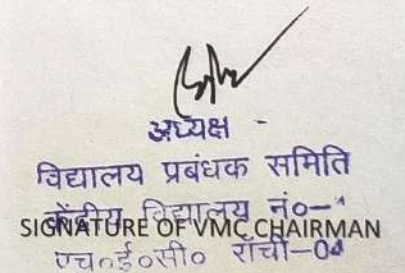 अध्यक्ष -
विद्यालय प्रबंधक समिति
केंद्रीय विद्यालय नं०-
SIGNATURE OF VMC CHAIRMAN
एच०ई०सी० राँची-04